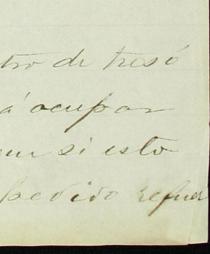 tro de tres ó
á ocupar
em si esto
pedido